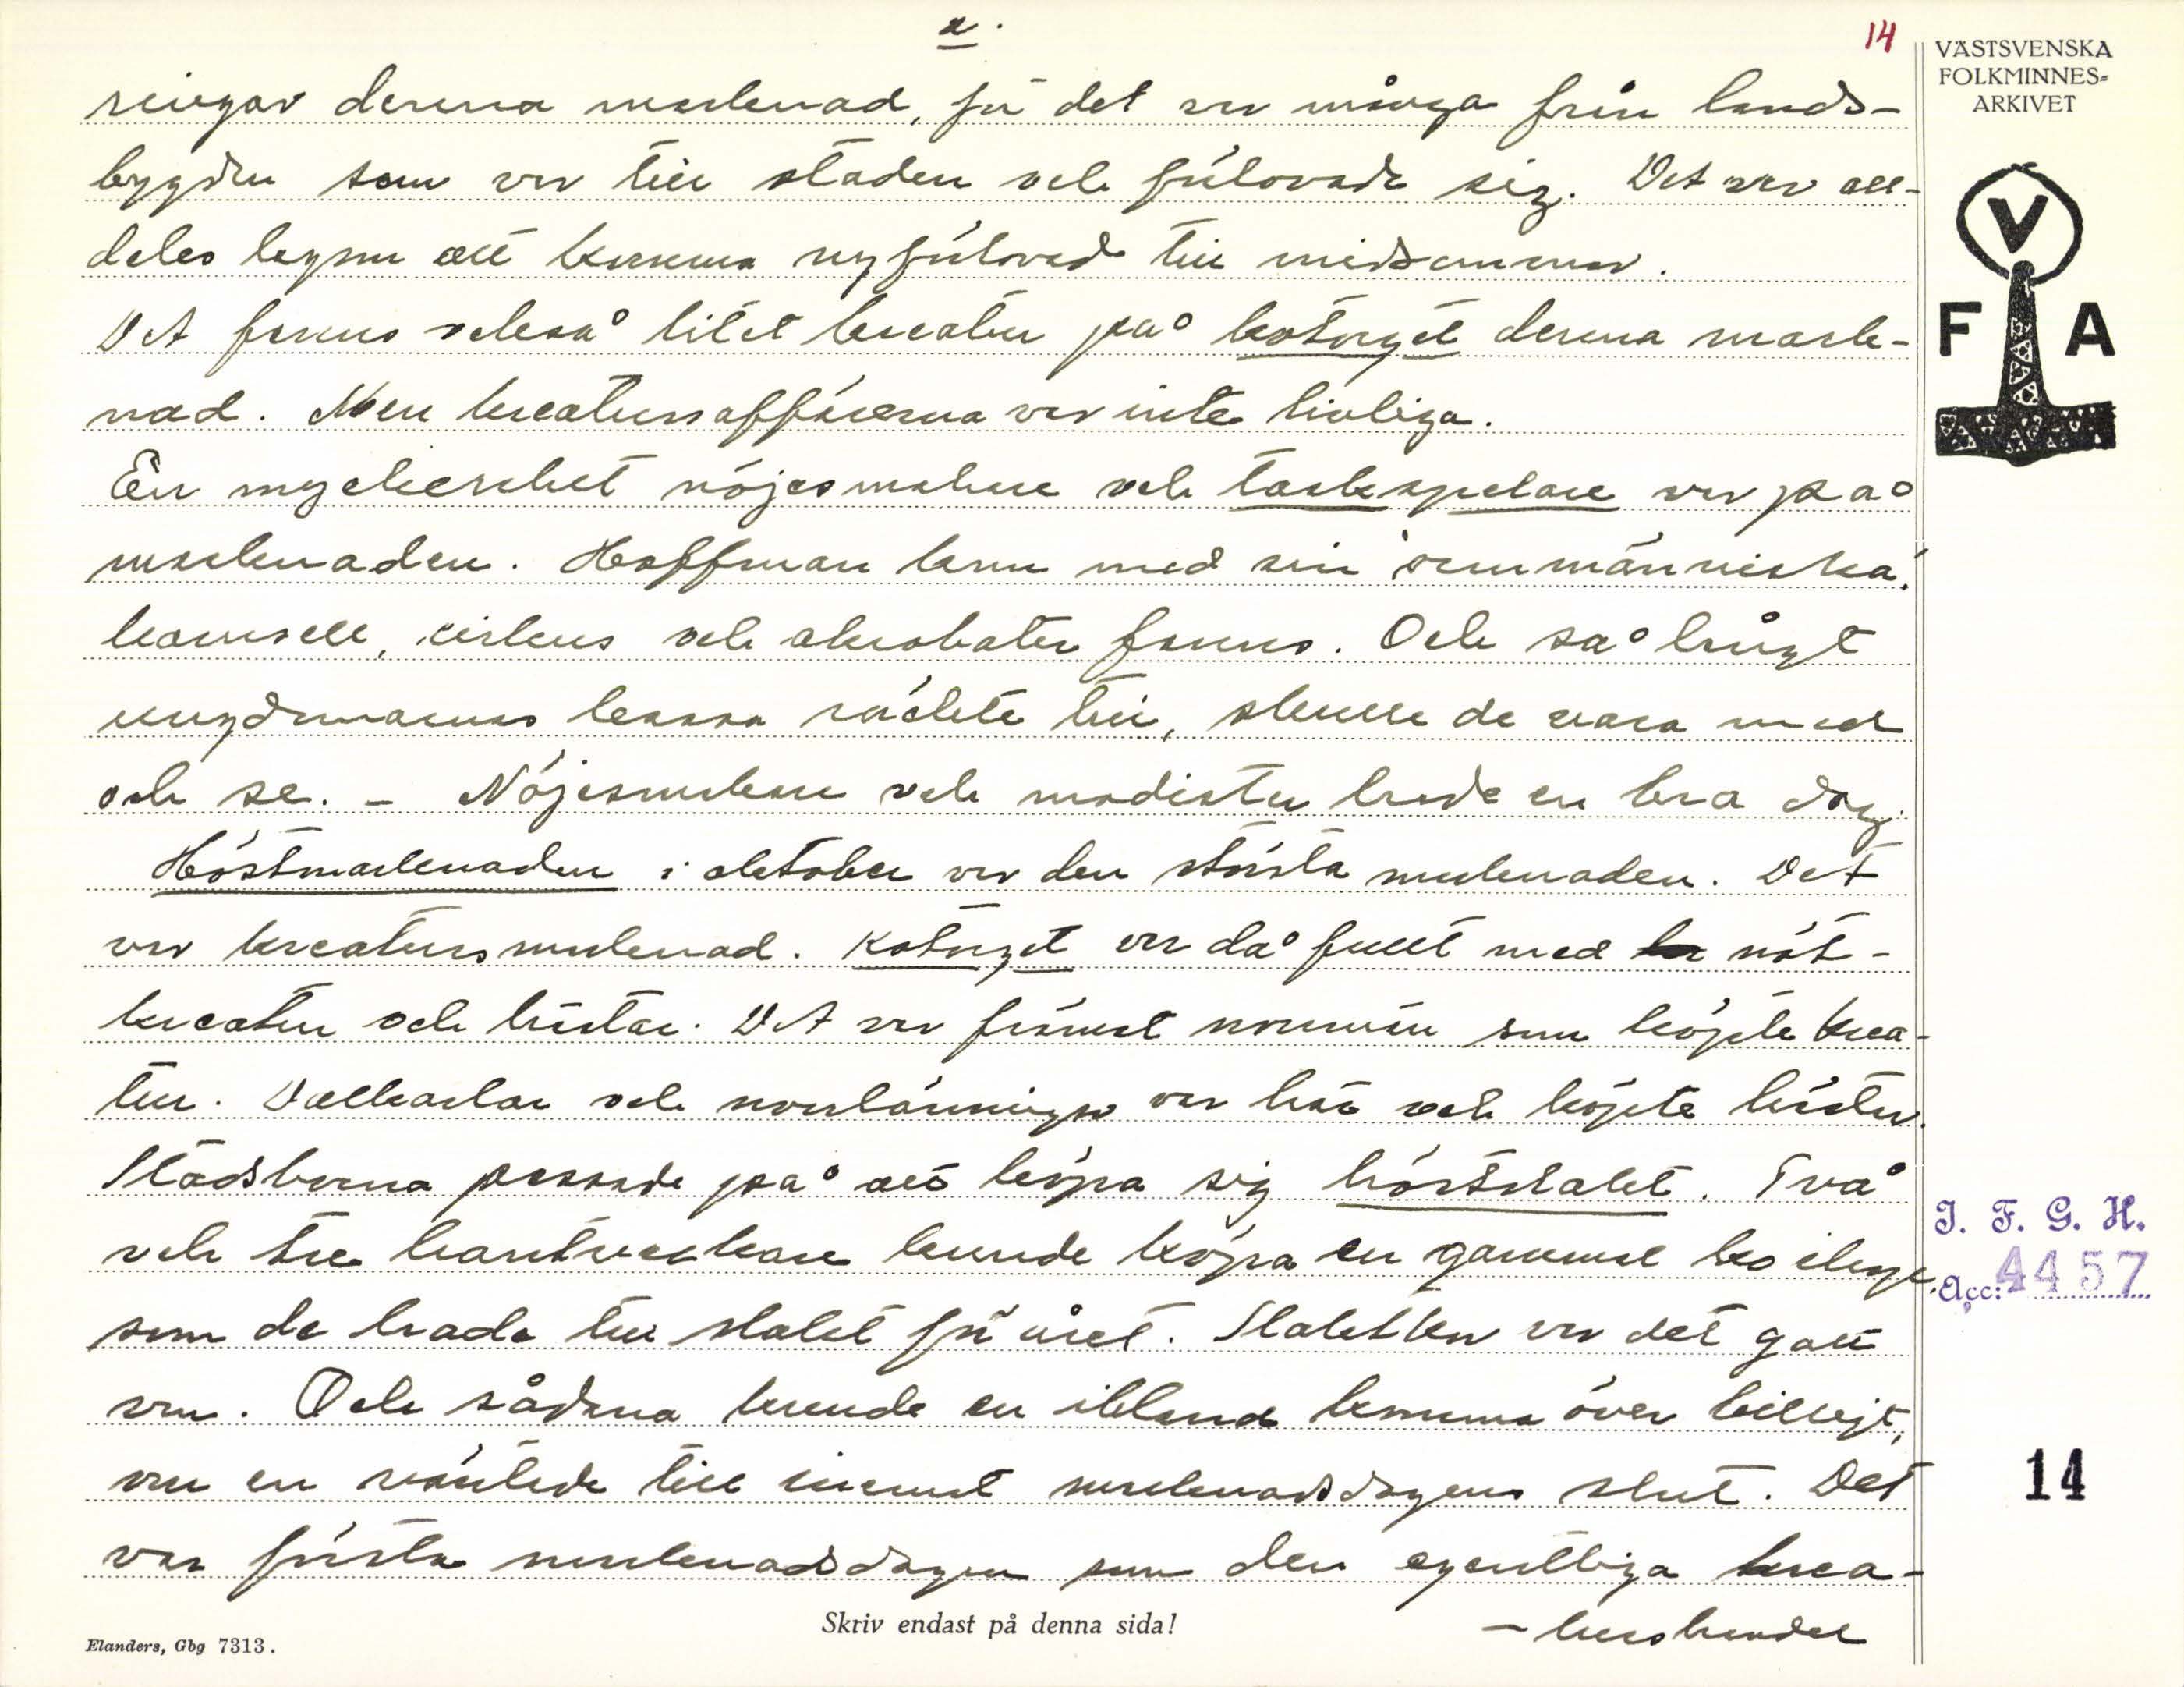 2.
14
ringar denna marknad, för det var många från lands-
bygden som var till staden och förlovade sig. Det var all-
deles legom att komma nyförlovad till midsommar.
Det fanns också litet kreatur på kotorget denna mark-
nad. Men kreatursaffärerna var inte livliga.
En myckenhet nöjesmakare och taskspelare var på
marknaden. Hoffman kom med sin "ormmänniska".
karusell, cirkus och akrobater fanns. Och så långt
ungdomarnas kassa räckte till, skulle de vara med
och se. - Nöjesmakare och modister hade en bra dag.
Höstmarknaden i oktober var den största marknaden. Det
var kreatursmarknad. Kotorget var då fullt med nöt-
kreatur och hästar. Det var främst norrmän som köpte krea-
tur. Dalkarlar och norrlänningar var här och köpte hästar.
Stadsborna passade på att köpa sig höstslaktet. Två
och tre hantverkare kunde köpa en gammal ko ihop
som de hade till slakt för året. Slaktkor var det gott
om. Och sådana kunde en ibland komma över billigt,
om en väntade till inemot marknadsdagens slut. Det
var första marknadsdagen som den egentliga krea-
- turshandel
Skriv endast på denna sida!
Elanders, Gbg 7313.
VÄSTSVENSKA
FOLKMINNES=
ARKIVET
V
F A
I. F. G. H.
Acc: 4457
14